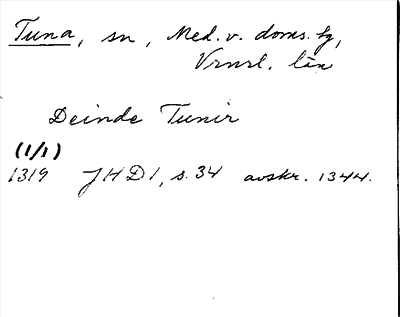 Tuna, sn, Med. v. doms. fg,
Vrnrl. län
Deinde Tunir
(1/1)
1319 JHD 1, s. 34 avskr. 1344.